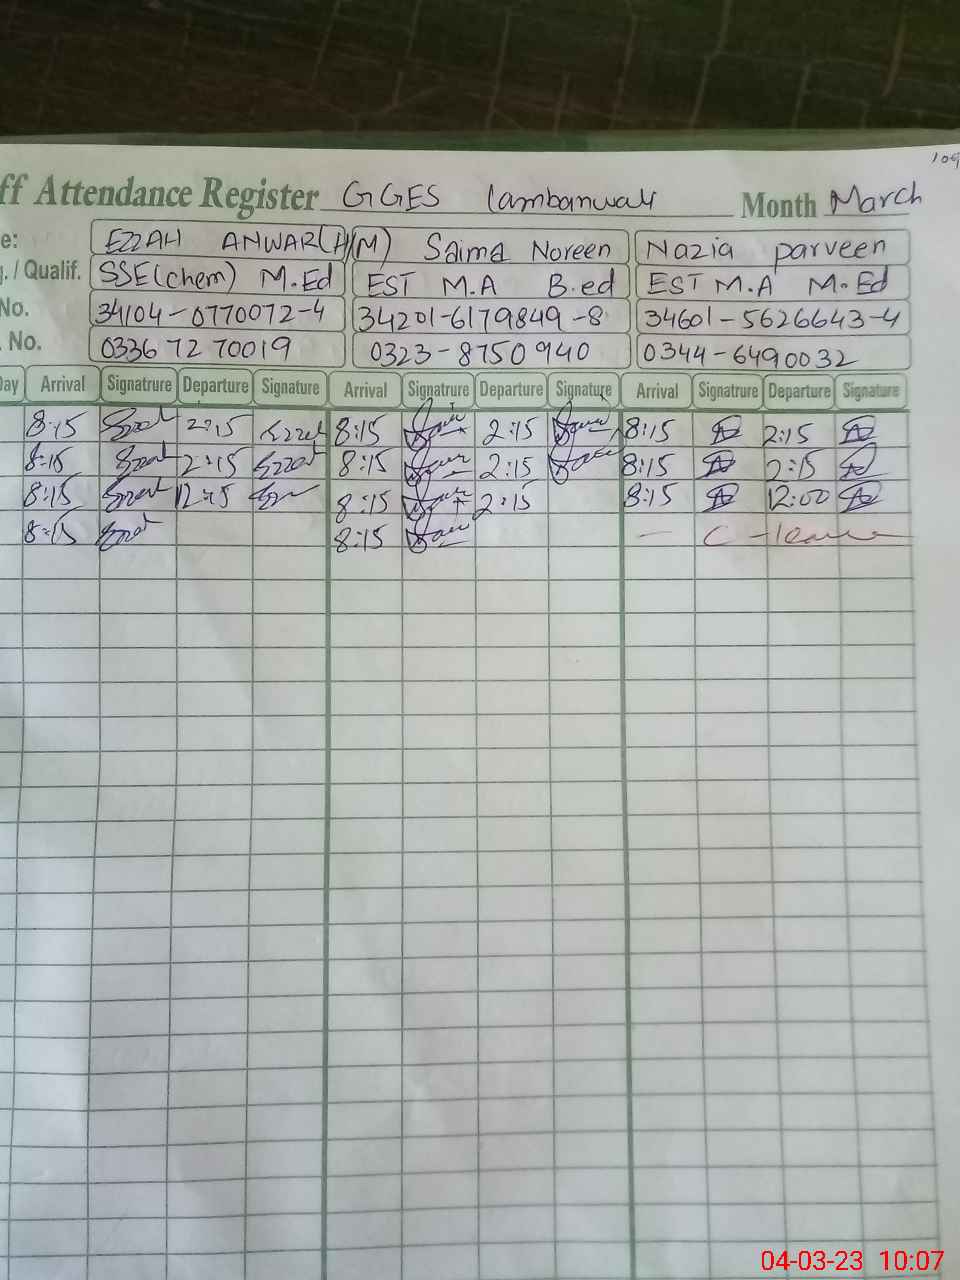 109
ff Attendance Register GGES lambanwali Month March
e: EZZAH ANWAR(H/M) Saima Noreen Nazia parveen
g. / Qualif. SSE(chem) M.Ed EST M.A B.ed EST M.A M.Ed
No. 34104-0770072-4 34201-6179849-8 34601-5626643-4
. No. 0336 72 70019 0323-8750940 0344-6490032
Day Arrival Signatrure Departure Signature Arrival Signatrure Departure Signature Arrival Signatrure Departure Signature
8:15 2:15 8:15 2:15 8:15 2:15
8:15 2:15 8:15 2:15 8:15 2:15
8:15 12:15 8:15 2:15 8:15 12:00
8:15 8:15 — C-leave
04-03-23 10:07